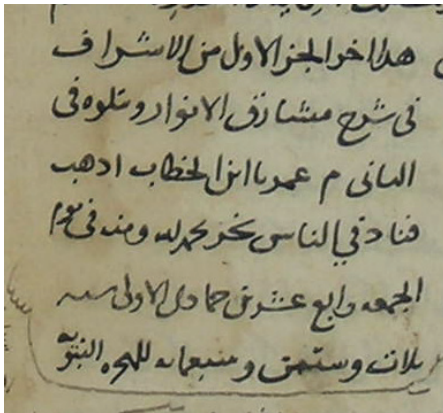 هذا اخر الجز الاول من الاشراف
فى شرح مشارق الانوار ويتلوه فى
الثانى م عمر يا ابن الخطاب اذهب
فناد في الناس نجز بحمد لله ومنه فى يوم
الجمعه رابع عشرين جمادى الاولى سنه
ثلاث وستين وسبعمايه للهجره النبويه